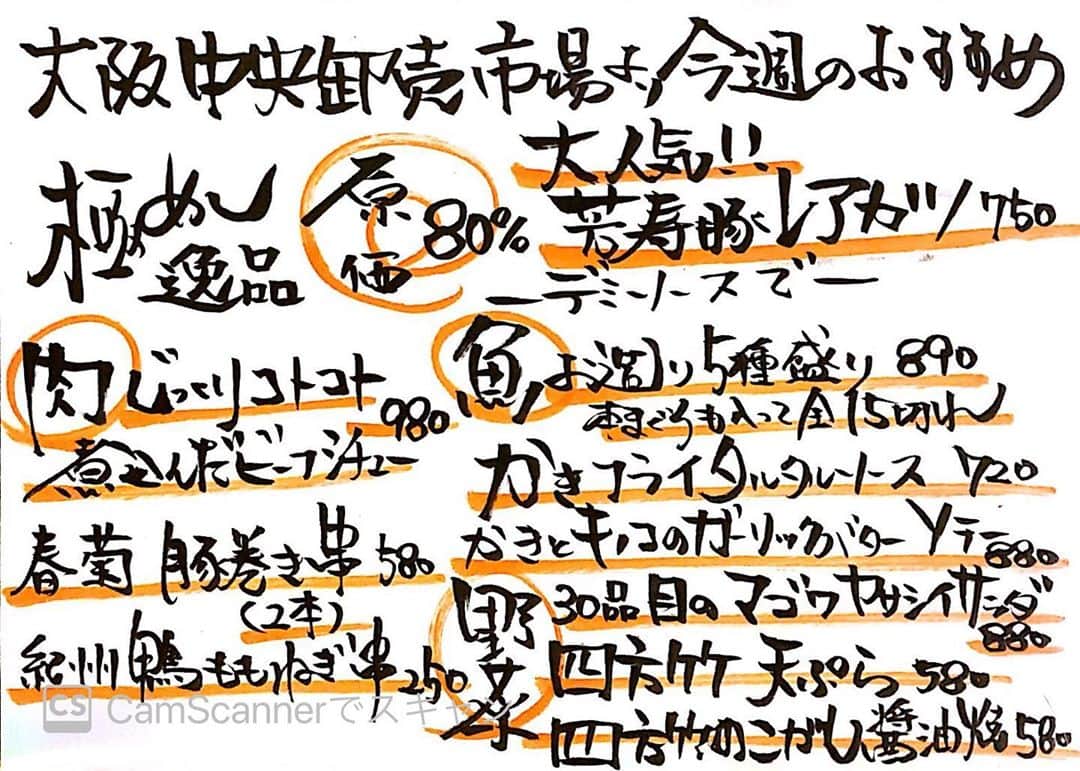 大阪中央卸売市場より今週のおすすめ
極めし
逸品
原価
80%
大人気!!
芳寿豚レアカツ 750
ーデミソースでー
肉
じっくりコトコト
煮込んだビーフシチュー 980
春菊 豚巻き串 580
(2本)
紀州鴨ももねぎ串 250
魚
お造り5種盛り 890
本まぐろも入って全15切れ
かきフライタルタルソース 720
かきとキノコのガーリックバターソテー 880
野菜
30品目のマゴワヤサシイサラダ 880
四方竹 天ぷら 580
四方竹のこがし醤油焼 580
CS CamScannerでスキャン